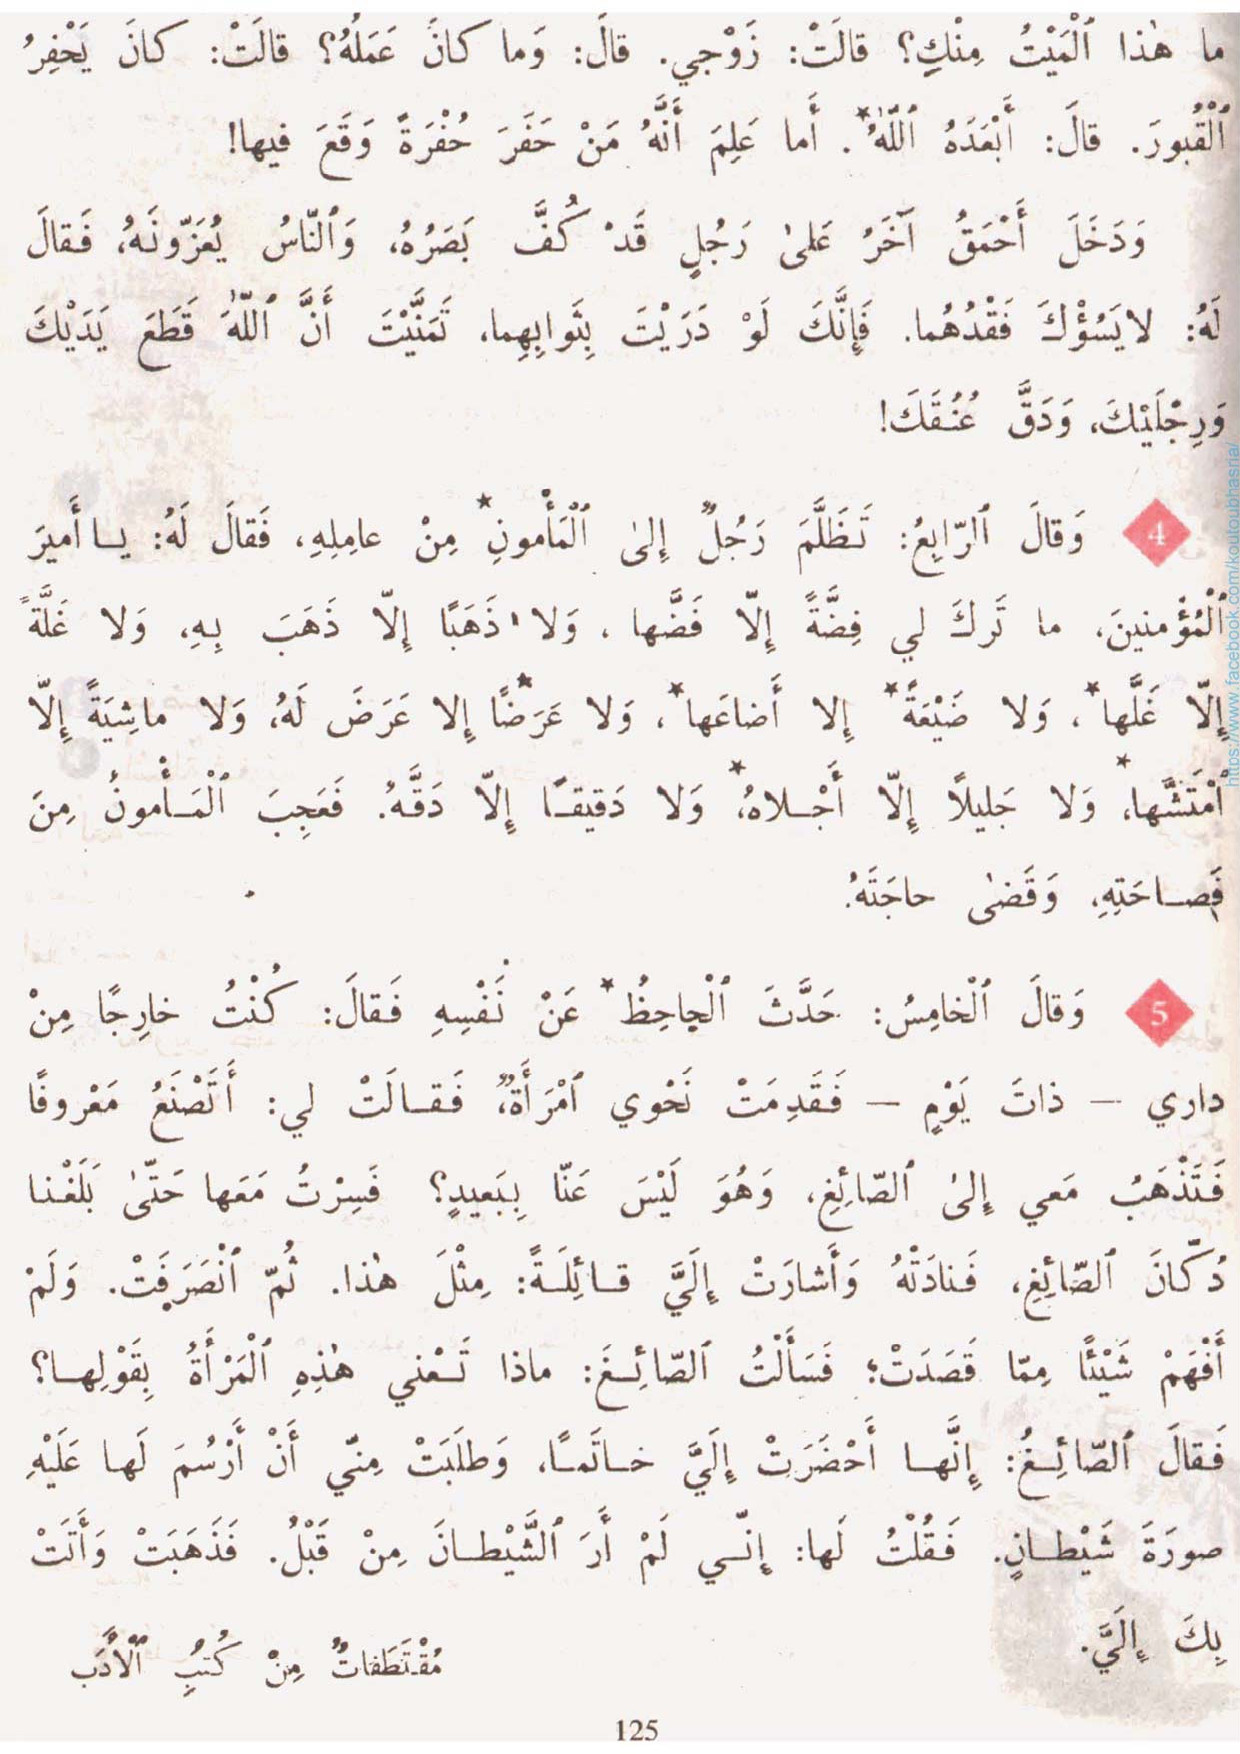 ما هٰذا ٱلْمَيْتُ مِنْكِ؟ قالَتْ: زَوْجي. قالَ: وَما كانَ عَمَلُهُ؟ قالَتْ: كانَ يَحْفِرُ
ٱلْقُبورَ. قالَ: أَبْعَدَهُ ٱللّٰهُ*. أَما عَلِمَ أَنَّهُ مَنْ حَفَرَ حُفْرَةً وَقَعَ فيها!
وَدَخَلَ أَحْمَقُ آخَرُ عَلىٰ رَجُلٍ قَدْ كُفَّ بَصَرُهُ، وَٱلنّاسُ يُعَزّونَهُ، فَقالَ
لَهُ: لا يَسُؤْكَ فَقْدُهُما. فَإِنَّكَ لَوْ دَرَيْتَ بِثَوابِهِما، تَمَنَّيْتَ أَنَّ ٱللّٰهَ قَطَعَ يَدَيْكَ
وَرِجْلَيْكَ، وَدَقَّ عُنُقَكَ!
4 وَقالَ ٱلرّابِعُ: تَظَلَّمَ رَجُلٌ إِلىٰ ٱلْمَأْمونِ* مِنْ عامِلِهِ، فَقالَ لَهُ: يا أَميرَ
ٱلْمُؤْمنينَ، ما تَركَ لي فِضَّةً إِلّا فَضَّها، وَلا ذَهَبًا إِلّا ذَهَبَ بِهِ، وَلا غَلَّةً
إِلّا غَلَّها*، وَلا ضَيْعَةً* إِلا أَضاعَها*، وَلا عَرَضًا* إِلا عَرَضَ لَهُ، وَلا ماشِيَةً إِلّا
ٱمْتَشَّها*، وَلا جَليلًا إِلّا أَجْلاهُ*، وَلا دَقيقًا إِلّا دَقَّهُ. فَعَجِبَ ٱلْمَأْمونُ مِنَ
فَصاحَتِهِ، وَقَضىٰ حاجَتَهُ.
5 وَقالَ ٱلْخامِسُ: حَدَّثَ ٱلْجاحِظُ* عَنْ نَفْسِهِ فَقالَ: كُنْتُ خارِجًا مِنْ
داري – ذاتَ يَوْمٍ – فَقَدِمَتْ نَحْوي ٱمْرَأَةٌ، فَقالَتْ لي: أَتَصْنَعُ مَعْروفًا
فَتَذْهَبُ مَعي إِلىٰ ٱلصّائِغِ، وَهُوَ لَيْسَ عَنّا بِبَعيدٍ؟ فَسِرْتُ مَعَها حَتّىٰ بَلَغْنا
دُكّانَ ٱلصّائِغِ، فَنادَتْهُ وَأَشارَتْ إِلَيَّ قائِلَةً: مِثْلَ هٰذا. ثُمّ ٱنْصَرَفَتْ. وَلَمْ
أَفْهَمْ شَيْئًا مِمّا قَصَدَتْ؛ فَسَأَلْتُ ٱلصّائِغَ: ماذا تَعْني هٰذِهِ ٱلْمَرْأَةُ بِقَوْلِها؟
فَقالَ ٱلصّائِغُ: إِنَّها أَحْضَرَتْ إِلَيَّ خاتَمًا، وَطلَبَتْ مِنّي أَنْ أَرْسُمَ لَها عَلَيْهِ
صورَةَ شَيْطانٍ. فَقُلْتُ لَها: إِنّي لَمْ أَرَ ٱلشَّيْطانَ مِنْ قَبْلُ. فَذَهَبَتْ وَأَتَتْ
بِكَ إِلَيَّ.
مُقْتَطَفاتٌ مِنْ كُتبِ ٱلْأَدَب
125
https://www.facebook.com/koutoubhasria/